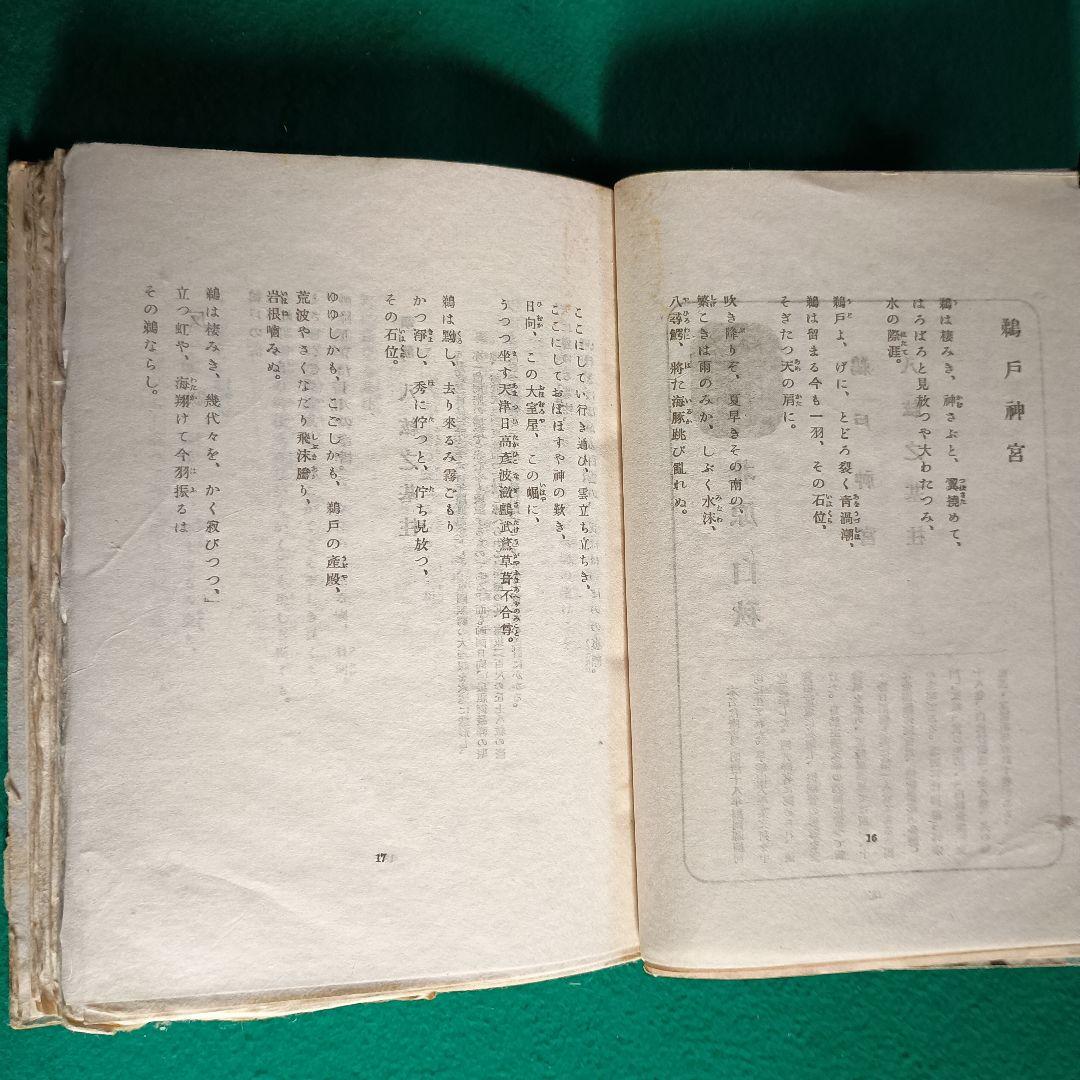 鵜戸神宮
鵜は棲みき、神さぶと、翼撓めて、
はろばろと見放つや大わたつみ、
水の際涯。
鵜戸よ、げに、とどろ裂く青渦潮、
鵜は留まる今も一羽、その石位、
そぎたつ天の肩に。
吹き降りぞ、夏早きその南の、
繁こきは雨のみか、しぶく水沫、
八尋鰐、將た海豚跳び亂れぬ。
16
ここにしてい行き遶び、雲立ち立ちき、
ここにしておほほすや神の歎き、
日向、この大室屋、この崛に、
うつつ坐す天津日高彥波瀲鸕鷀草葺不合尊。
鵜は黝し、去り來るみ霧ごもり
かつ滑し、秀に佇つと、佇ち見放つ、
その石位。
ゆゆしかも、こごしかも、鵜戸の產殿、
荒波やさくなだり飛沫騰り、
岩根嚙みぬ。
鵜は棲みき、幾代々を、かく寂びつつ、
立つ虹や、海翔けて今羽振るは
その鵜ならし。
17